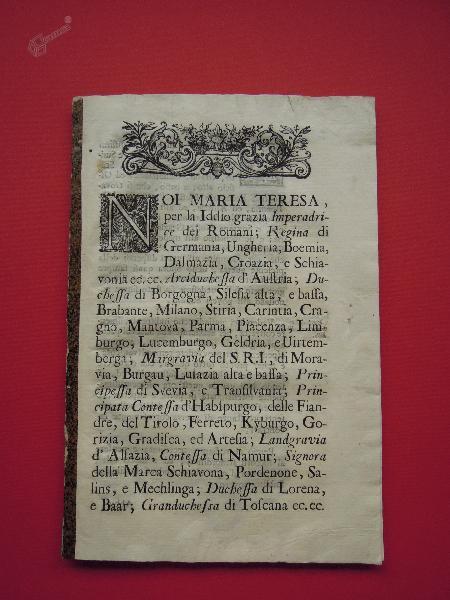 NOI MARIA TERESA,
per la Iddio grazia Imperadri-
ce dei Romani; Regina di
Germania, Ungheria, Boemia,
Dalmazia, Croazia, e Schia-
vonia ec. ec. Arciduchessa d'Austria; Du-
chessa di Borgogna, Silesia alta, e bassa,
Brabante, Milano, Stiria, Carintia, Cra-
gno, Mantova, Parma, Piacenza, Lim-
burgo, Lucemburgo, Geldria, e Uirtem-
berga; Margravia del S. R. I., di Mora-
via, Burgau, Lusazia alta e bassa; Prin-
cipessa di Svevia, e Transilvania; Prin-
cipata Contessa d'Habspurgo, delle Fian-
dre, del Tirolo, Ferreto, Kyburgo, Go-
rizia, Gradisca, ed Artesia; Landgravia
d'Alsazia, Contessa di Namur; Signora
della Marca Schiavona, Pordenone, Sa-
lins, e Mechlinga; Duchessa di Lorena,
e Baar; Granduchessa di Toscana ec. ec.